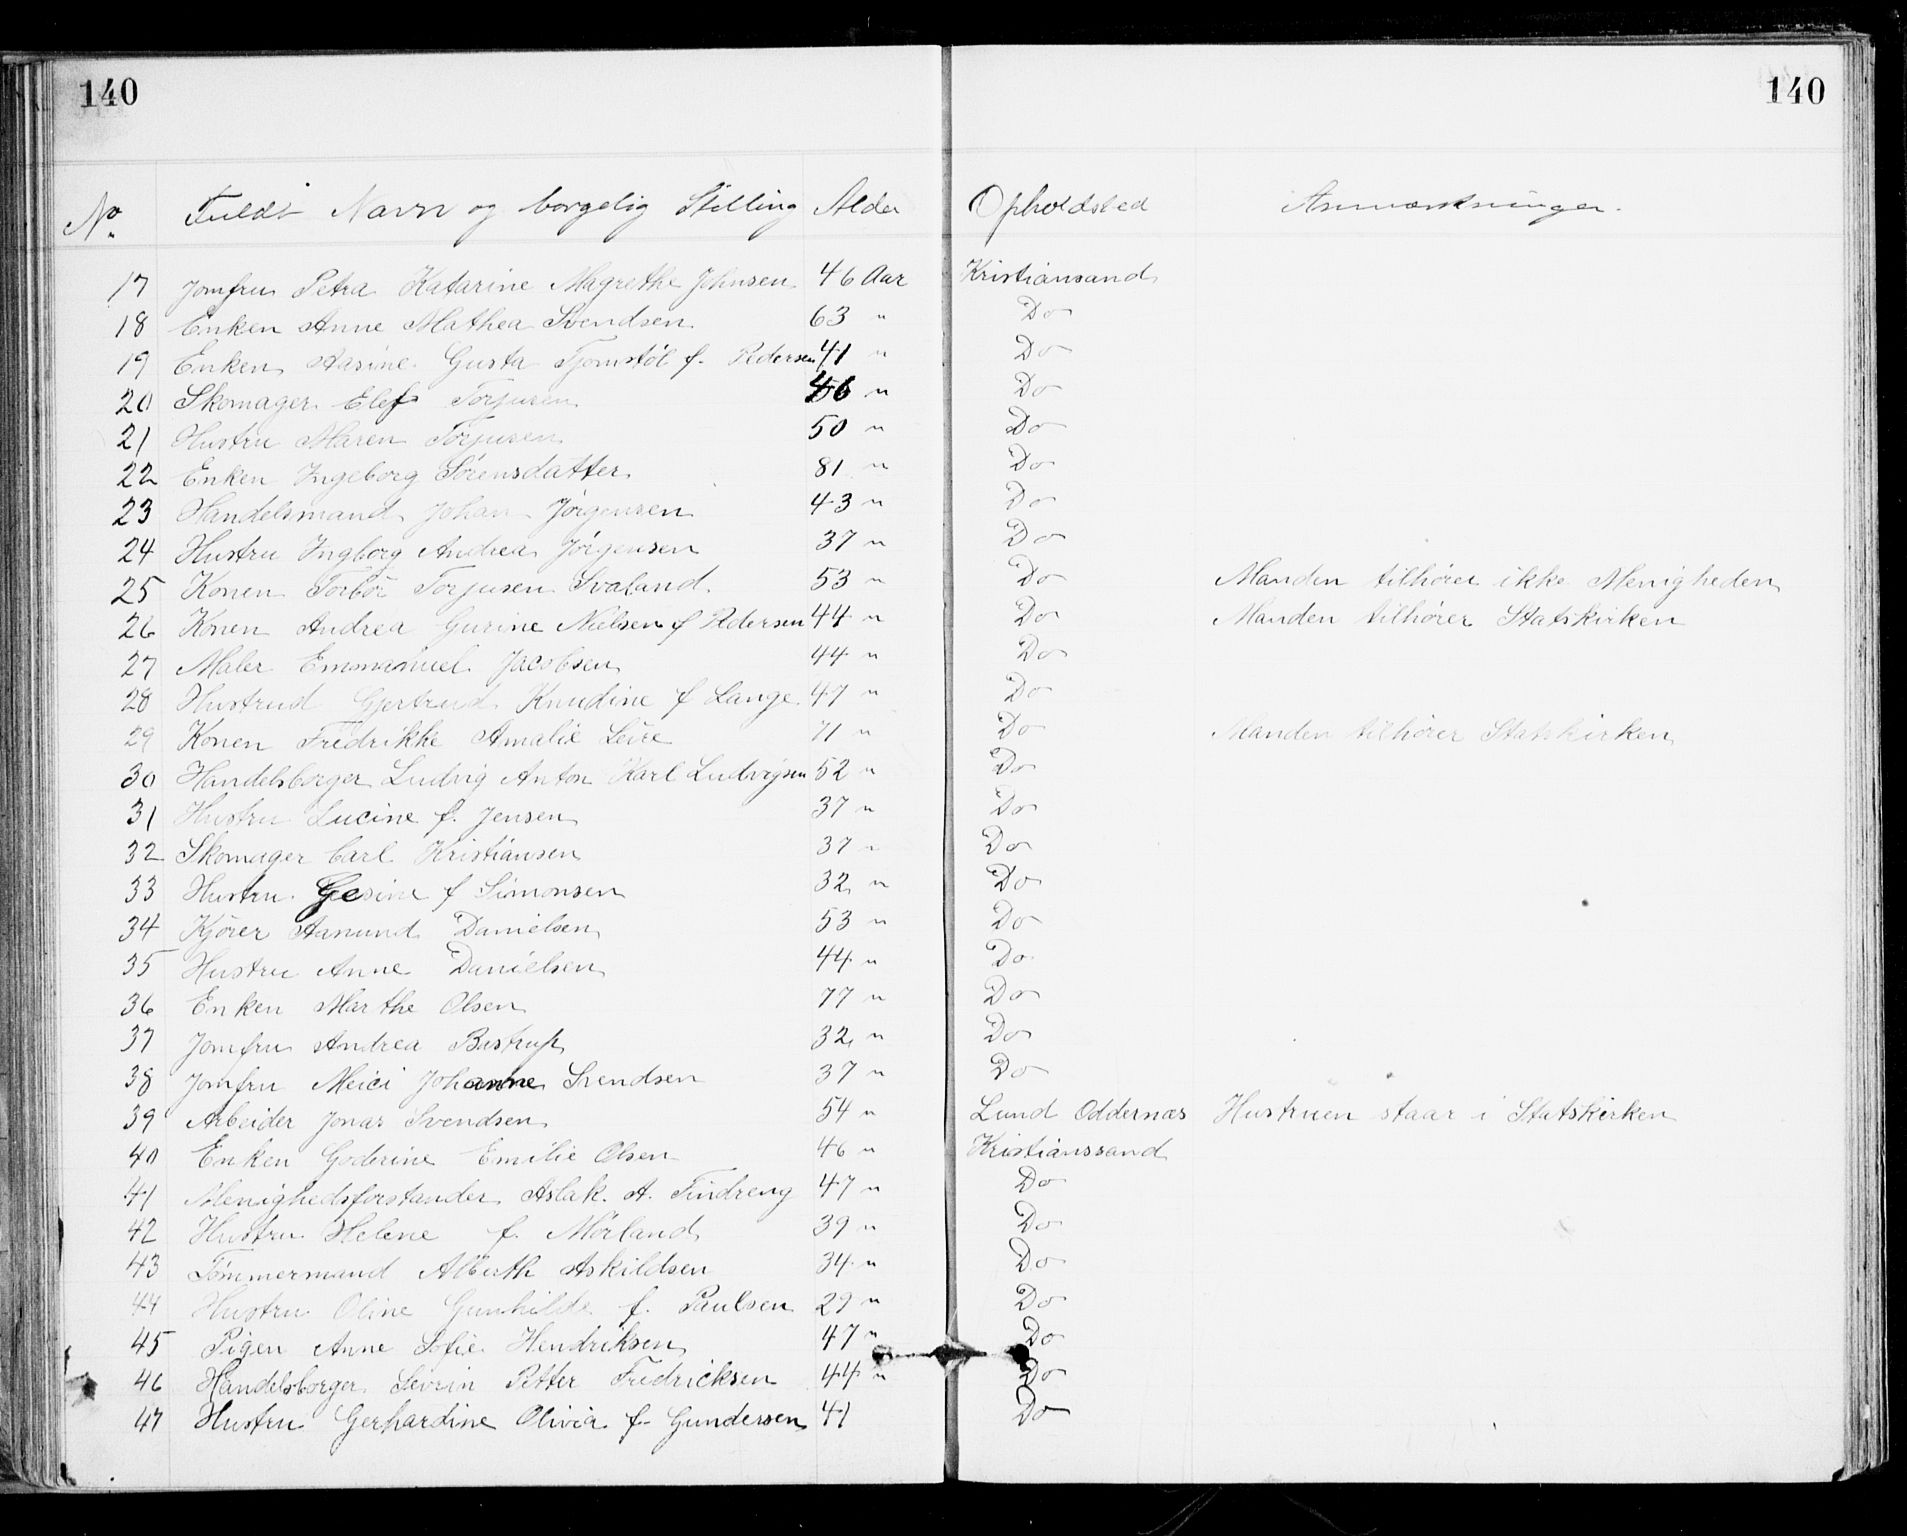 140 140
No. Fuldt Navn og borgelig Stilling Alder Opholdsted Anmærkninger.
17 Jomfru Petra Katarine Magrethe Johnsen 46 Aar Kristiansand
18 Enken Anne Mathea Svendsen 63 " Do
19 Enken Aasine Gusta Tjomstøl f. Pedersen 41 " Do
20 Skomager Elef Torjusen 46 " Do
21 Hustru Maren Torjusen 50 " Do
22 Enken Ingeborg Sørensdatter 81 " Do
23 Handelsmand Johan Jørgensen 43 " Do
24 Hustru Ingborg Andrea Jørgensen 37 " Do
25 Konen Torbör Torjusen Svaland 53 " Do Manden tilhører ikke Menigheden
26 Konen Andrea Gurine Nielsen f Pedersen 44 " Do Manden tilhører Statskirken
27 Maler Emmanuel Jacobsen 44 " Do
28 Hustrud Gjertrud Knudine f Lange 47 " Do
29 Konen Fredrikke Amalie Leire 71 " Do Manden tilhører Statskirken
30 Handelsborger Ludvig Anton Karl Ludvigsen 52 " Do
31 Hustru Lucine f. Jensen 37 " Do
32 Skomager Carl Kristiansen 37 " Do
33 Hustru Gesine f Simonsen 32 " Do
34 Kjører Aanund Danielsen 53 " Do
35 Hustru Anne Danielsen 44 " Do
36 Enken Marthe Olsen 77 " Do
37 Jomfru Andrea Bastrup 32 " Do
38 Jomfru Meici Johanne Svendsen 37 " Do
39 Arbeider Jonas Svendsen 54 " Lund Oddernæs Hustruen staar i Statskirken
40 Enken Goderine Emilie Olsen 46 " Kristianssand
41 Menighedsforstander Aslak. A. Findreng 47 " Do
42 Hustru Helene f. Mörland 39 " Do
43 Tömmermand Alberth Askildsen 34 " Do
44 Hustru Oline Gunhilde f. Paulsen 29 " Do
45 Pigen Anne Sofie Hendriksen 47 " Do
46 Handelsborger Sevrin Petter Fredricksen 44 " Do
47 Hustru Gerhardine Olivia f. Gundersen 41 Do